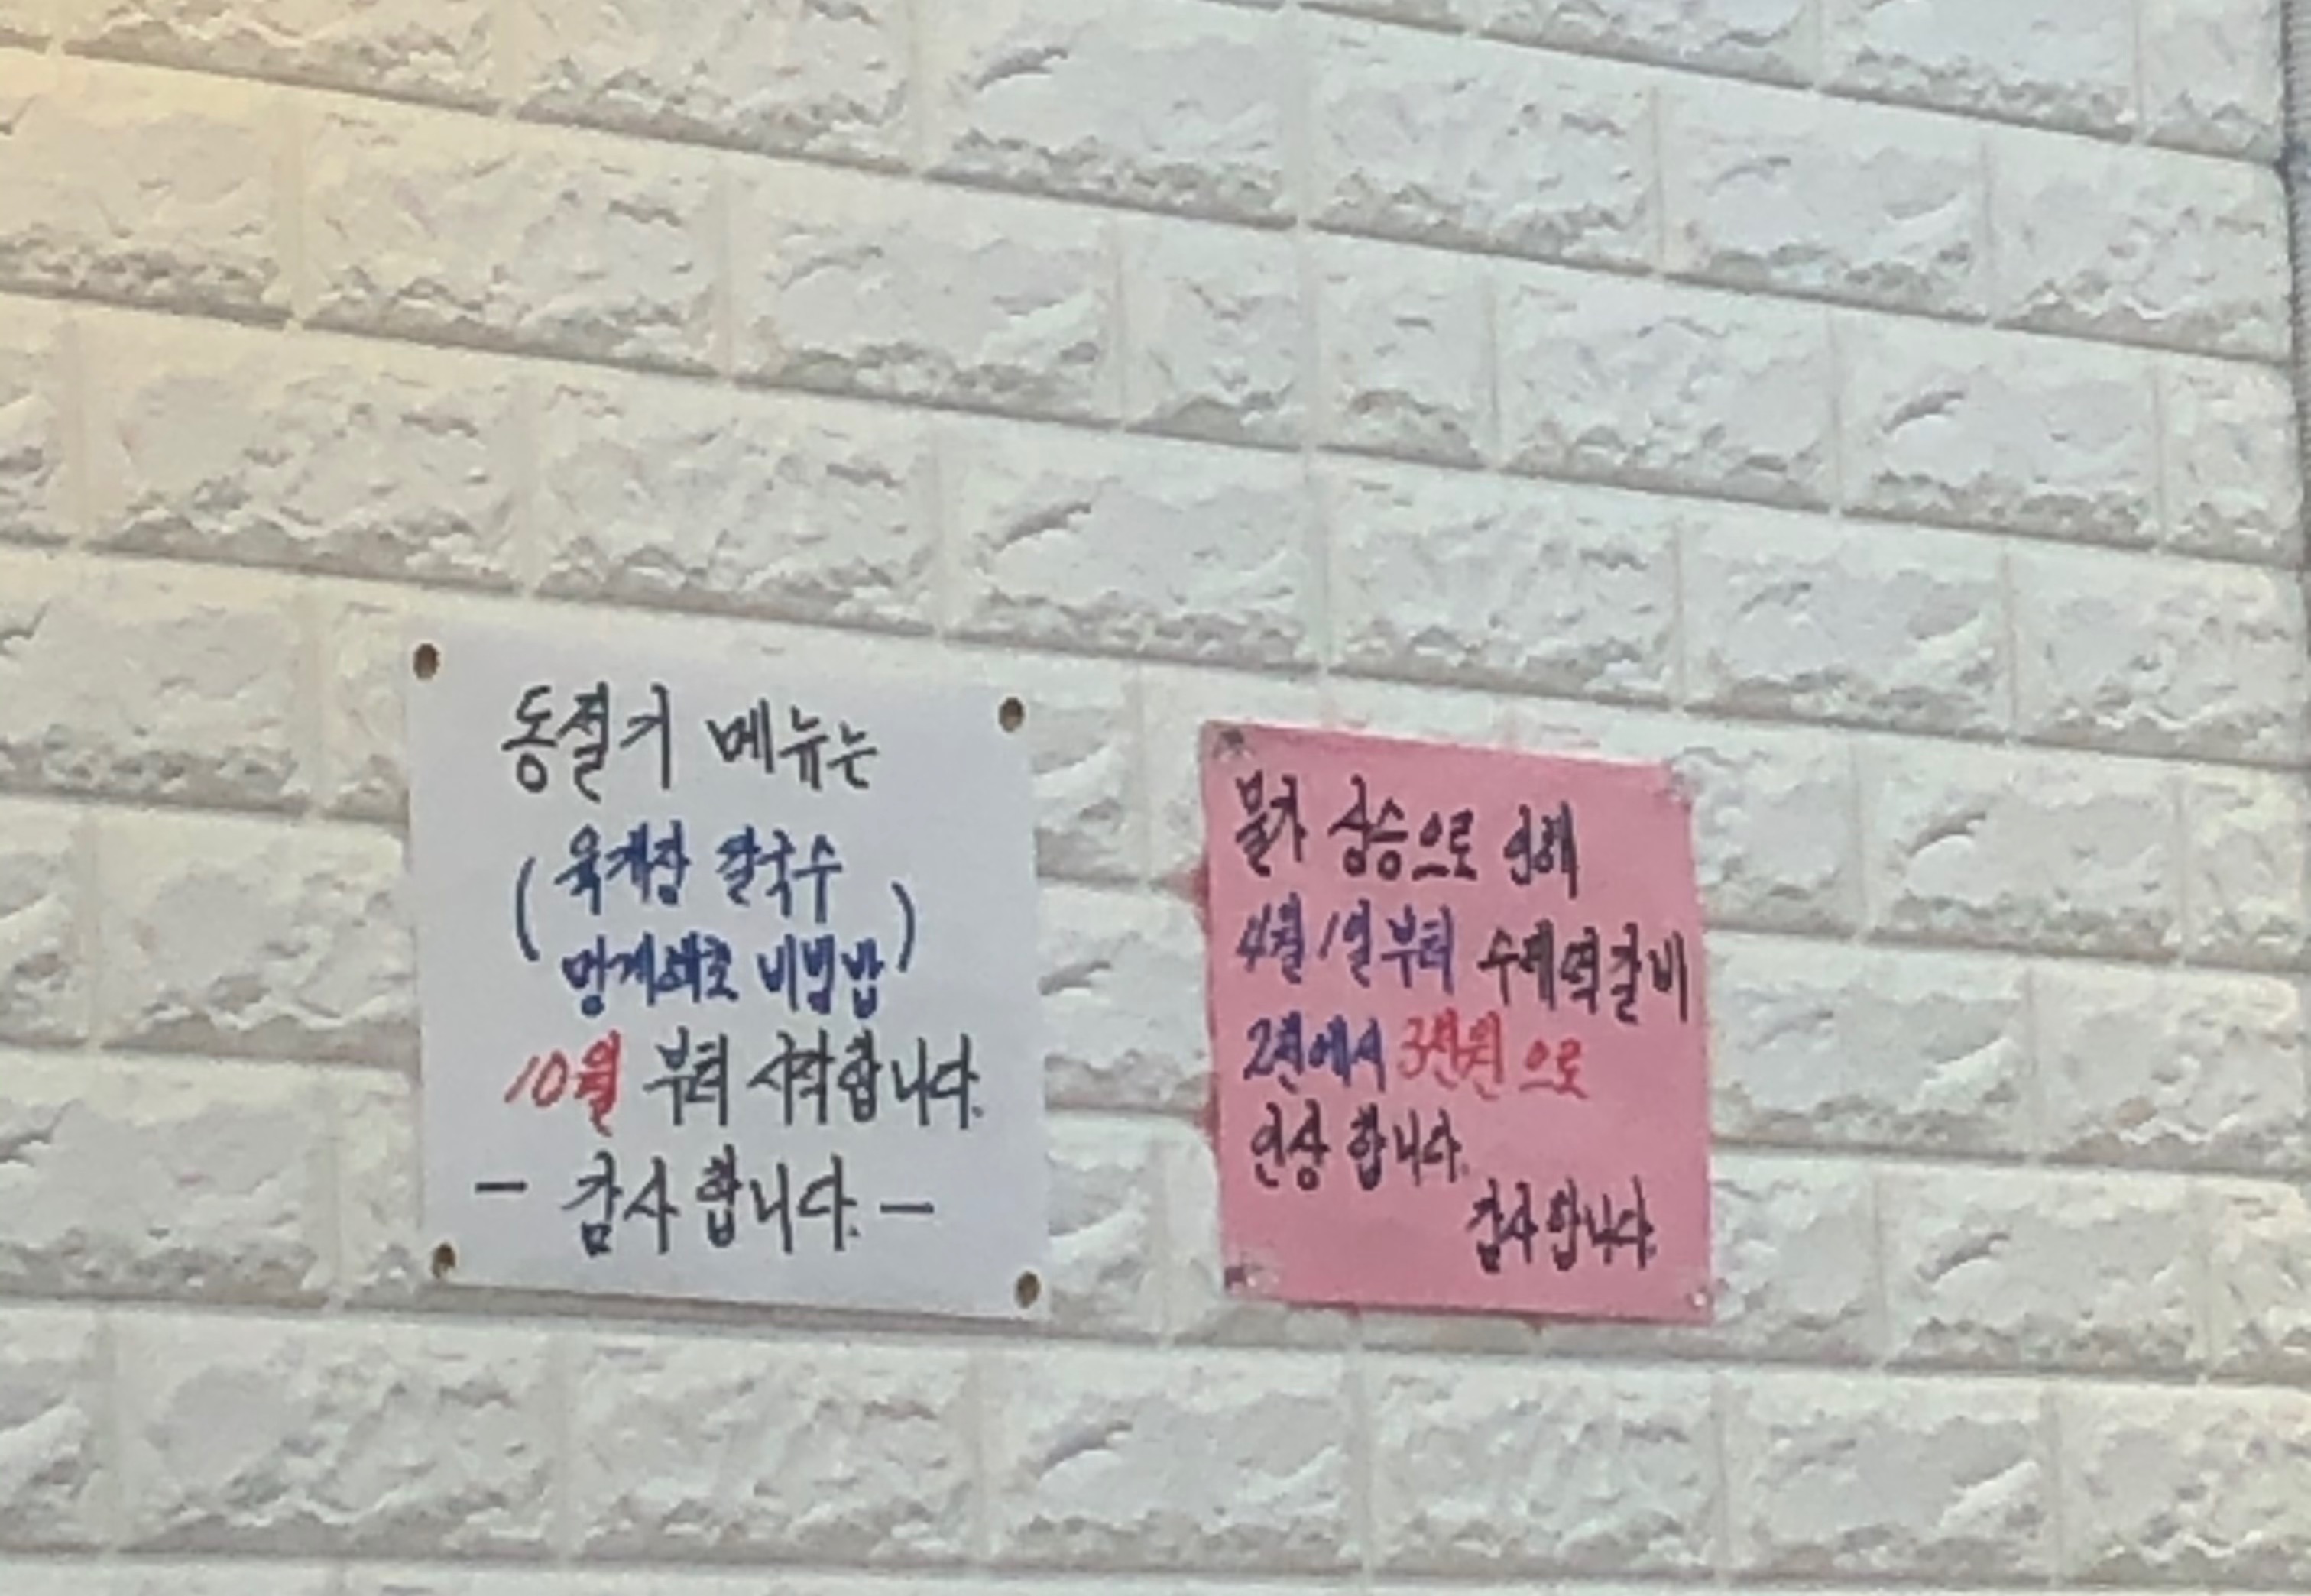 동절기 메뉴는
( 육개장 칼국수
멍게해초 비빔밥 )
10월 부터 시작합니다.
- 감사합니다. -
물가 상승으로 인해
4월 1일부터 수제떡갈비
2천에서 3천원으로
인상 합니다.
감사합니다.